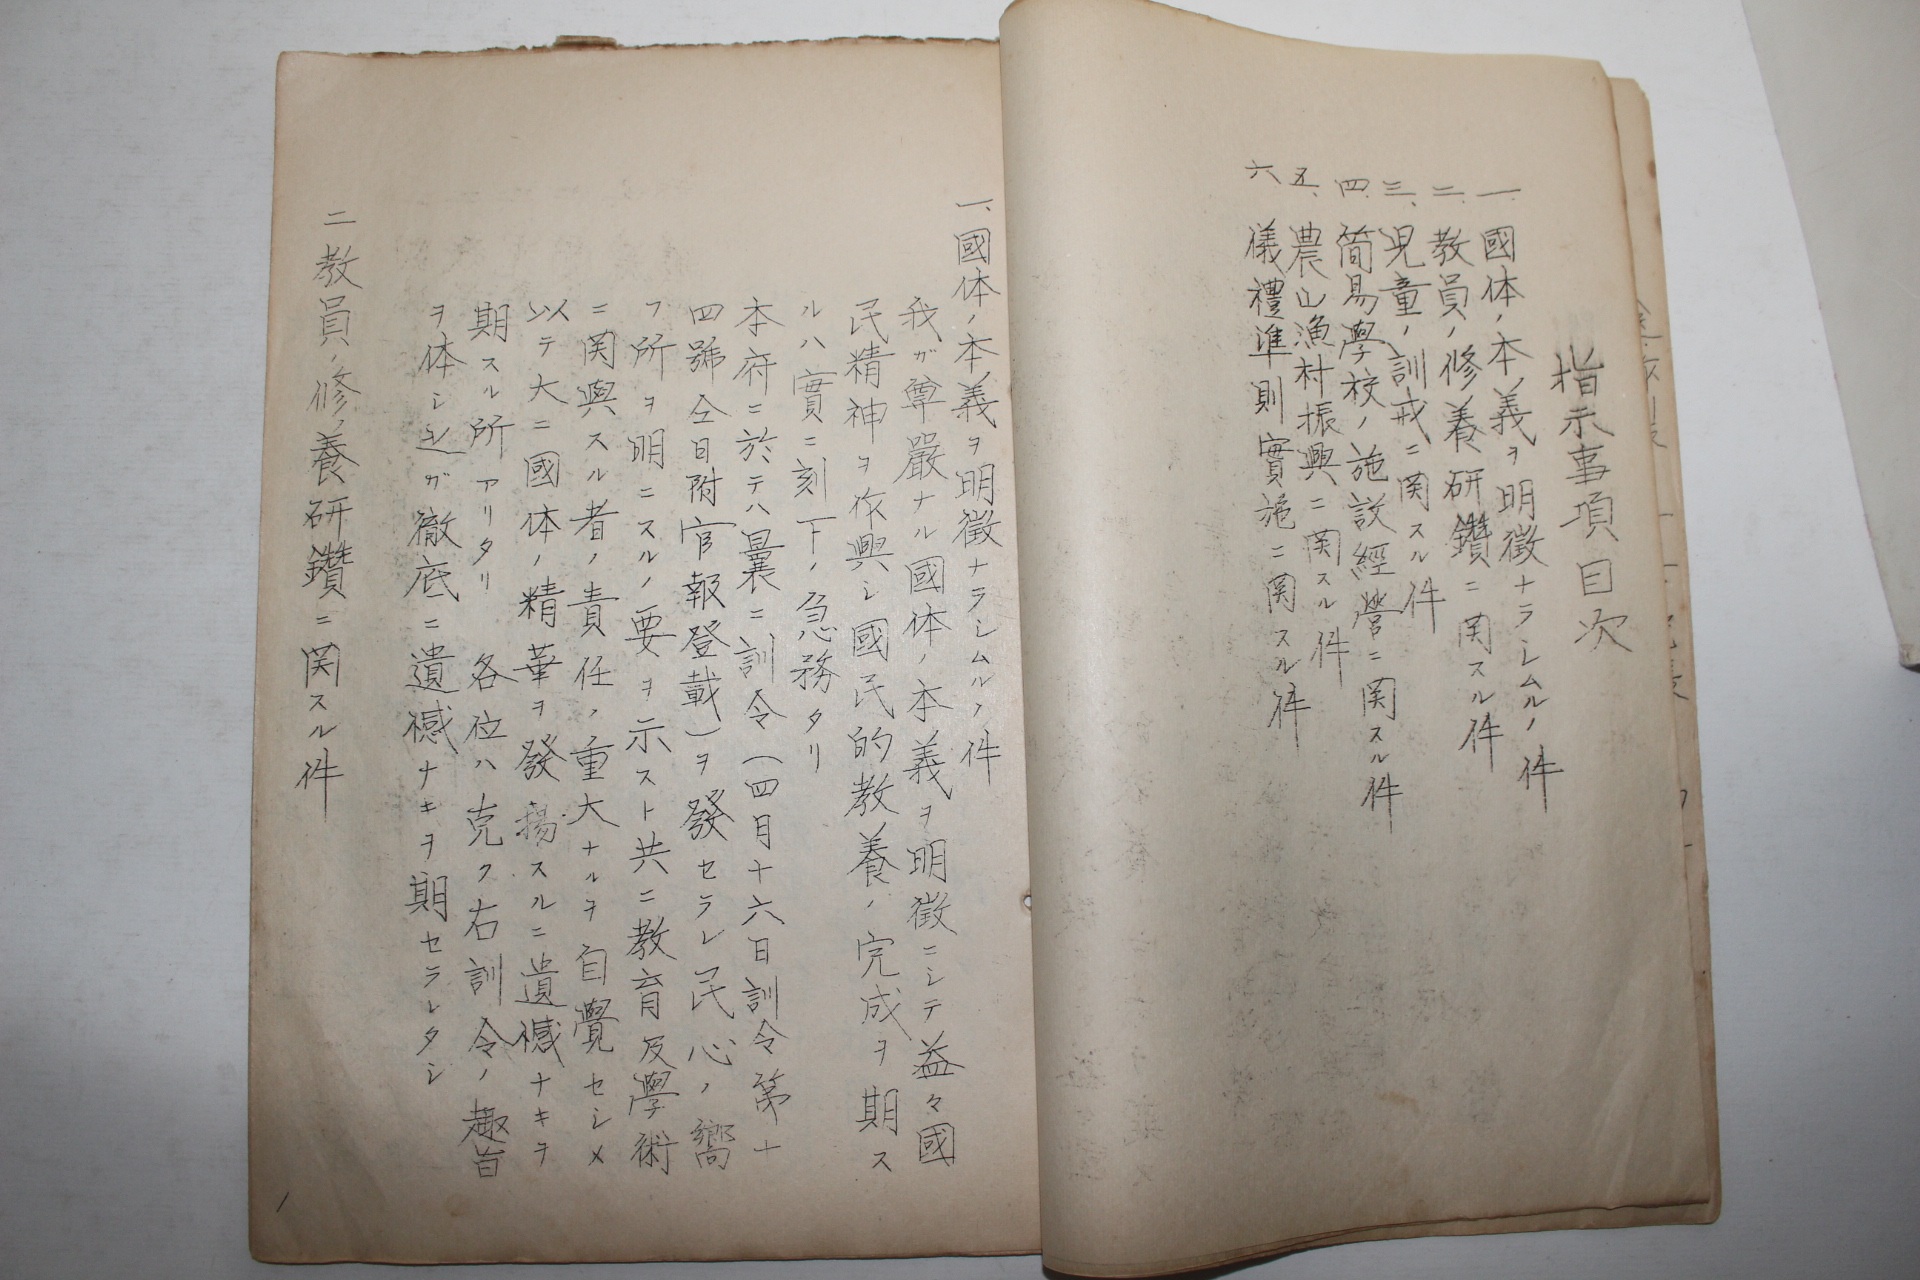 指示事項目次
一、國体ノ本義ヲ明徵ナラシムルノ件
二、教員ノ修養研鑽ニ関スル件
三、児童ノ訓戒ニ関スル件
四、簡易學校ノ施設經營ニ関スル件
五、農山漁村振興ニ関スル件
六 儀禮準則實施ニ関スル件
一、國体ノ本義ヲ明徵ナラシムルノ件
我ガ尊嚴ナル國体ノ本義ヲ明徵ニシテ益々國
民精神ヲ作興シ國民的教養ノ完成ヲ期ス
ルハ實ニ刻下ノ急務タリ
本府ニ於テハ曩ニ訓令(四月十六日訓令第十
四號仝日附官報登載)ヲ發セラレ民心ノ嚮
フ所ヲ明ニスルノ要ヲ示スト共ニ教育及學術
ニ関與スル者ノ責任ノ重大ナルヲ自覺セシメ
以テ大ニ國体ノ精華ヲ發揚スルニ遺憾ナキヲ
期スル所アリタリ 各位ハ克ク右訓令ノ趣旨
ヲ体シ之ガ徹底ニ遺憾ナキヲ期セラレタシ
二 教員ノ修養研鑽ニ関スル件
1